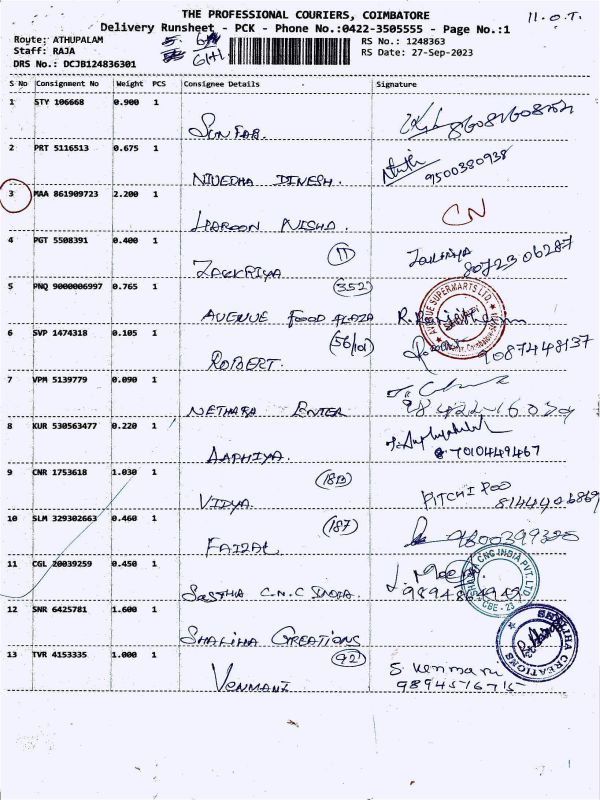 THE PROFESSIONAL COURIERS, COIMBATORE
11. O.T.
Delivery Runsheet - PCK - Phone No.:0422-3505555 - Page No.:1
Route: ATHUPALAM
RS No.: 1248363
Staff: RAJA
RS Date: 27-Sep-2023
DRS No.: DCJB124836301
S No Consignment No Weight PCS Consignee Details Signature
1 STY 106668 0.900 1
SUNFAB.
2 PRT 5116513 0.675 1
NIVEDHA DINESH. 9500380938
3 MAA 861909723 2.200 1
HAROON NISHA. CN
4 PGT 5508391 0.400 1
ZAKKRIYA (11) 80723 06287
5 PNQ 9000006997 0.765 1 (352)
AVENUE FOOD PLAZA
AVENUE SUPERMARTS LTD
6 SVP 1474318 0.105 1 (56/101)
ROBERT. 9087448137
7 VPM 5139779 0.090 1
NETHARA ENTER
8 KUR 530563477 0.220 1
AAPHIYA. 7010449467
9 CNR 1753618 1.030 1 (18B)
VIDYA PITCHI POO
8144406869
10 SLM 329302663 0.460 1 (187)
FAIZAL
11 CGL 20039259 0.450 1
SASTHA C.N.C INDIA.
CNC INDIA PVT. LTD
CBE - 23
12 SNR 6425781 1.600 1
SHALIHA CREATIONS
SHALIHA CREATIONS
13 TVR 4153335 1.000 1 (92)
VENMANI S. Venmani
9894516715